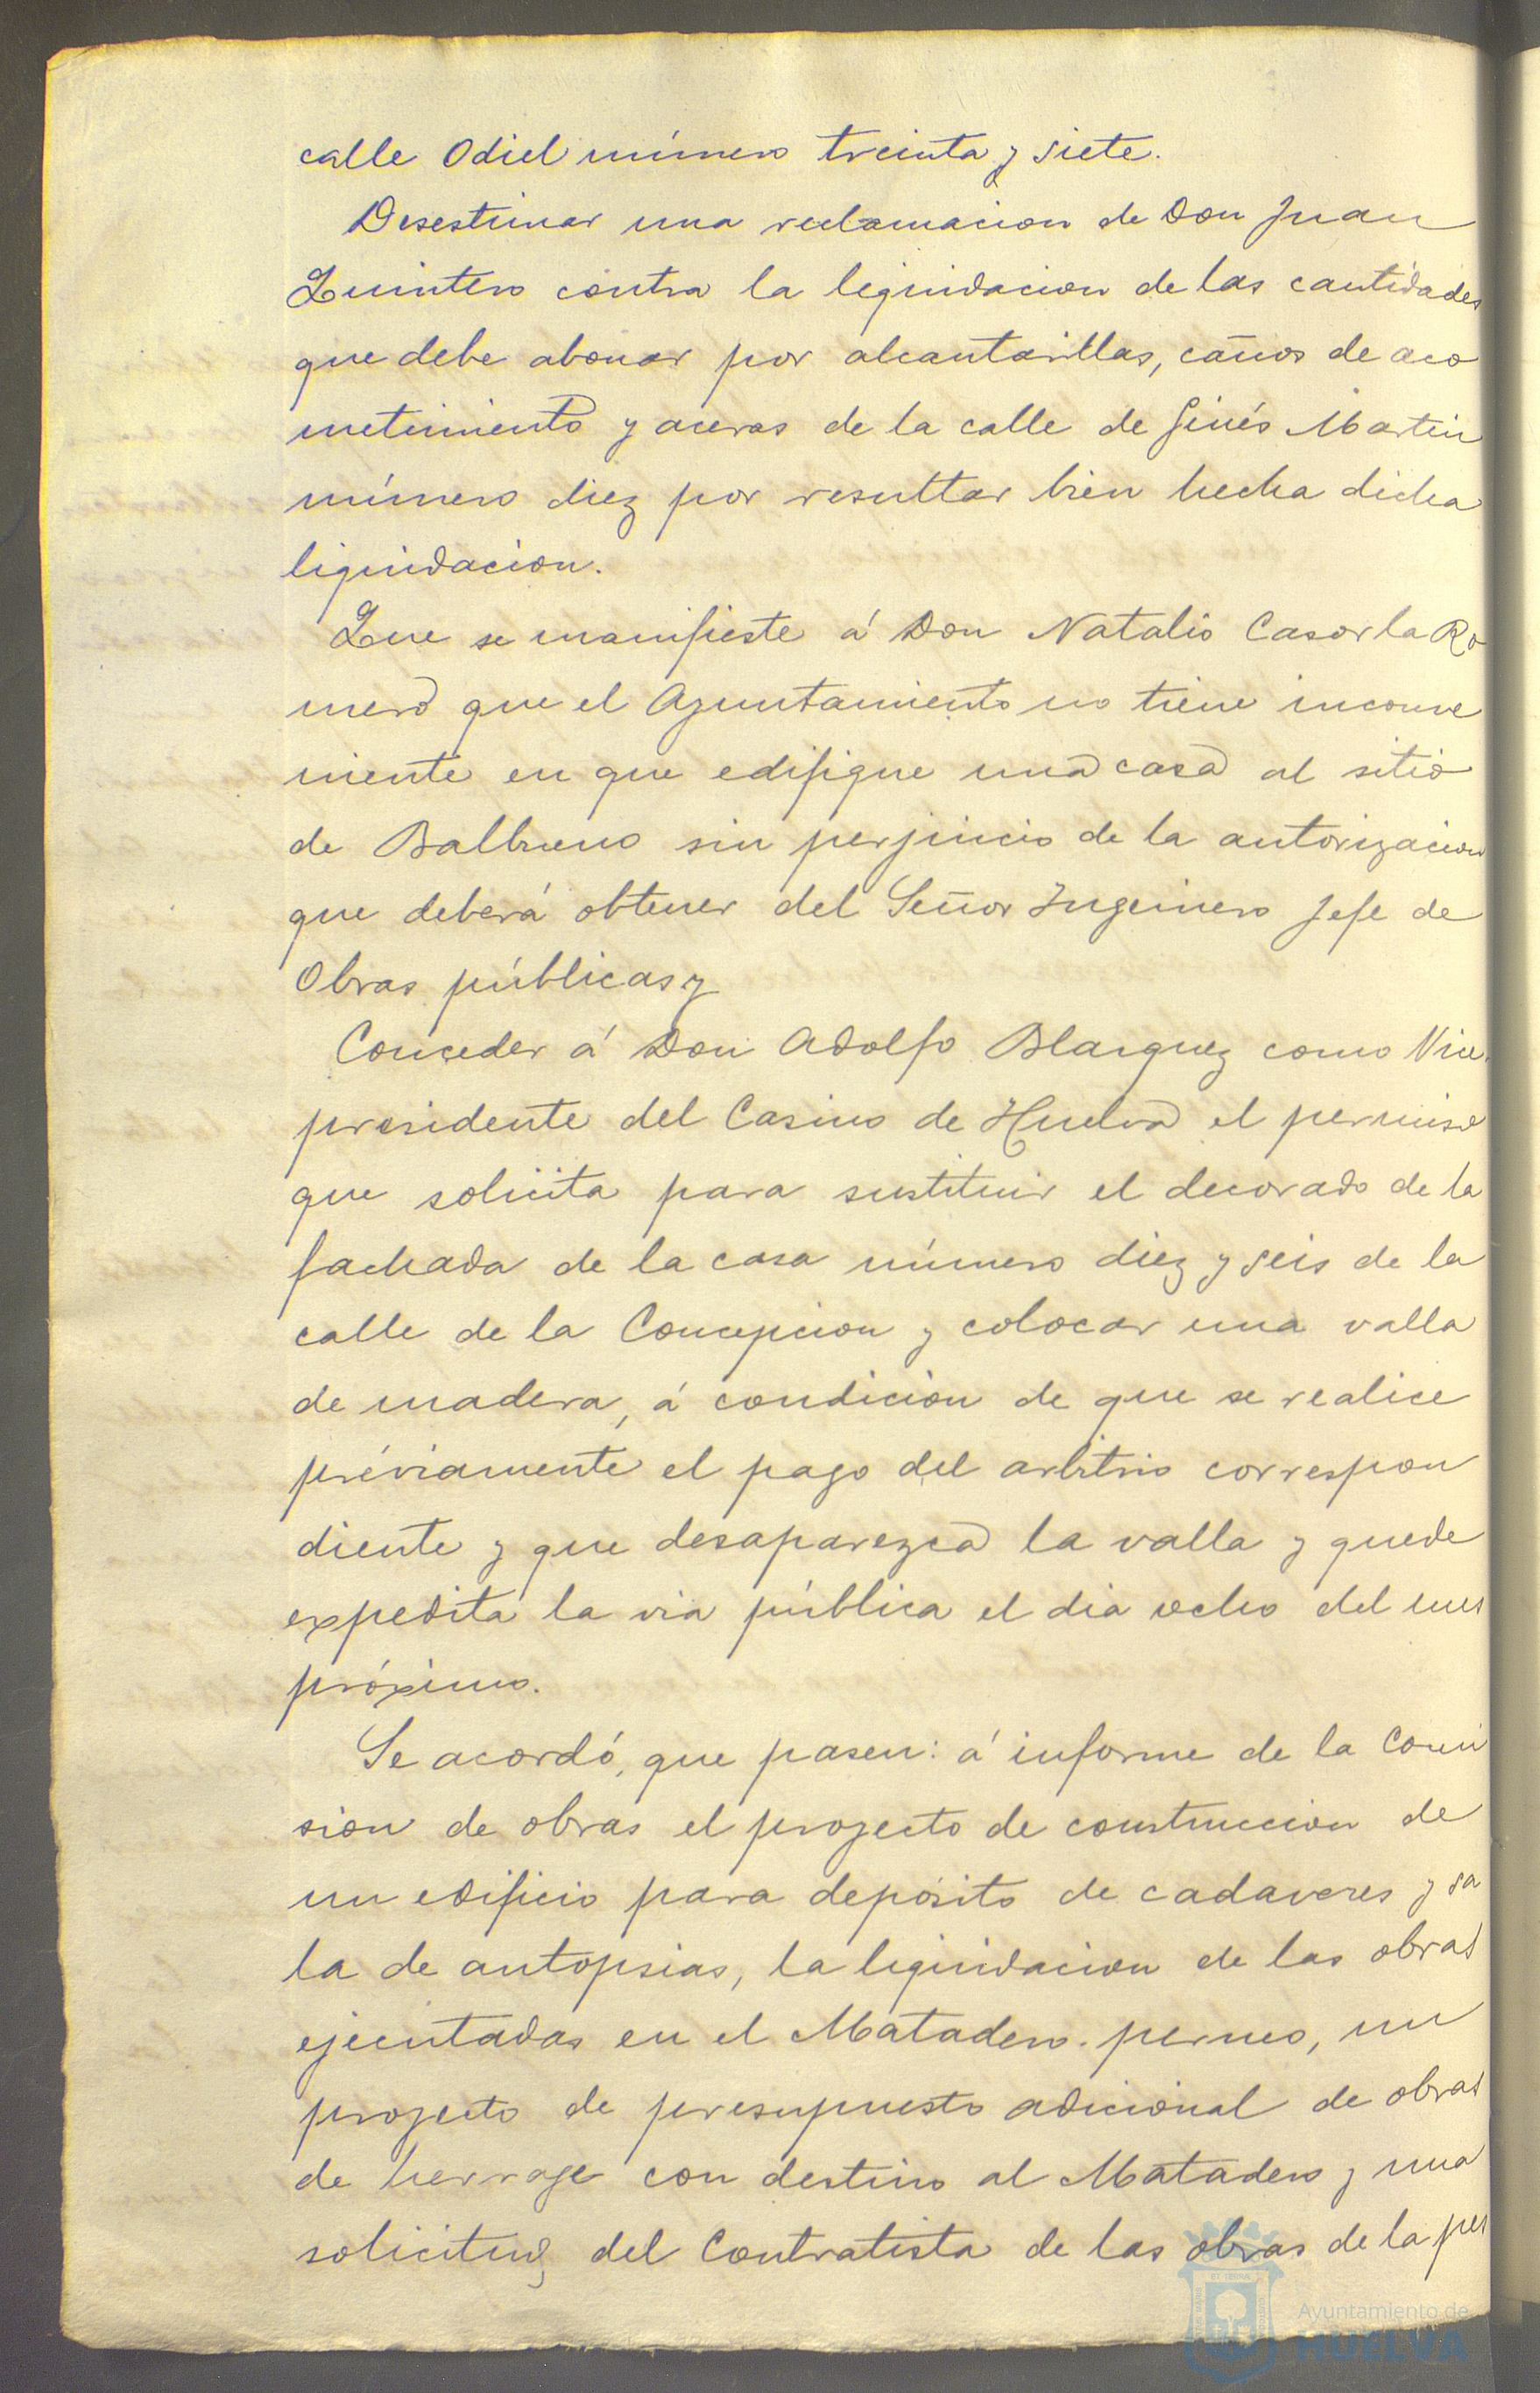 calle Odiel número treinta y siete.
Desestimar una reclamacion de Don Juan
Quintero contra la liquidacion de las cantidades
que debe abonar por alcantarillas, caños de aco
metimiento y aceras de la calle de Ginés Martin
número diez por resultar bien hecha dicha
liquidacion.
Que se manifieste á Don Natalio Casorla Ro
mero que el Ayuntamiento no tiene inconve
niente en que edifique una casa al sitio
de Balbueno sin perjuicio de la autorizacion
que deberá obtener del Señor Ingeniero Jefe de
Obras públicas y
Conceder á Don Adolfo Blazquez como Vice
presidente del Casino de Huelva el permiso
que solicita para sustituir el decorado de la
fachada de la casa número diez y seis de la
calle de la Concepcion y colocar una valla
de madera, á condicion de que se realice
préviamente el pago del arbitrio correspon
diente y que desaparezca la valla y quede
expedita la via pública el dia ocho del mes
próximo.
Se acordó, que pasen: á informe de la Comi
sion de obras el proyecto de construccion de
un edificio para depósito de cadaveres y sa
la de autopsias, la liquidacion de las obras
ejecutadas en el Matadero perneo, un
proyecto de presupuesto adicional de obras
de herrage con destino al Matadero y una
solicitud del Contratista de las obras de la pes
Ayuntamiento de
HUELVA